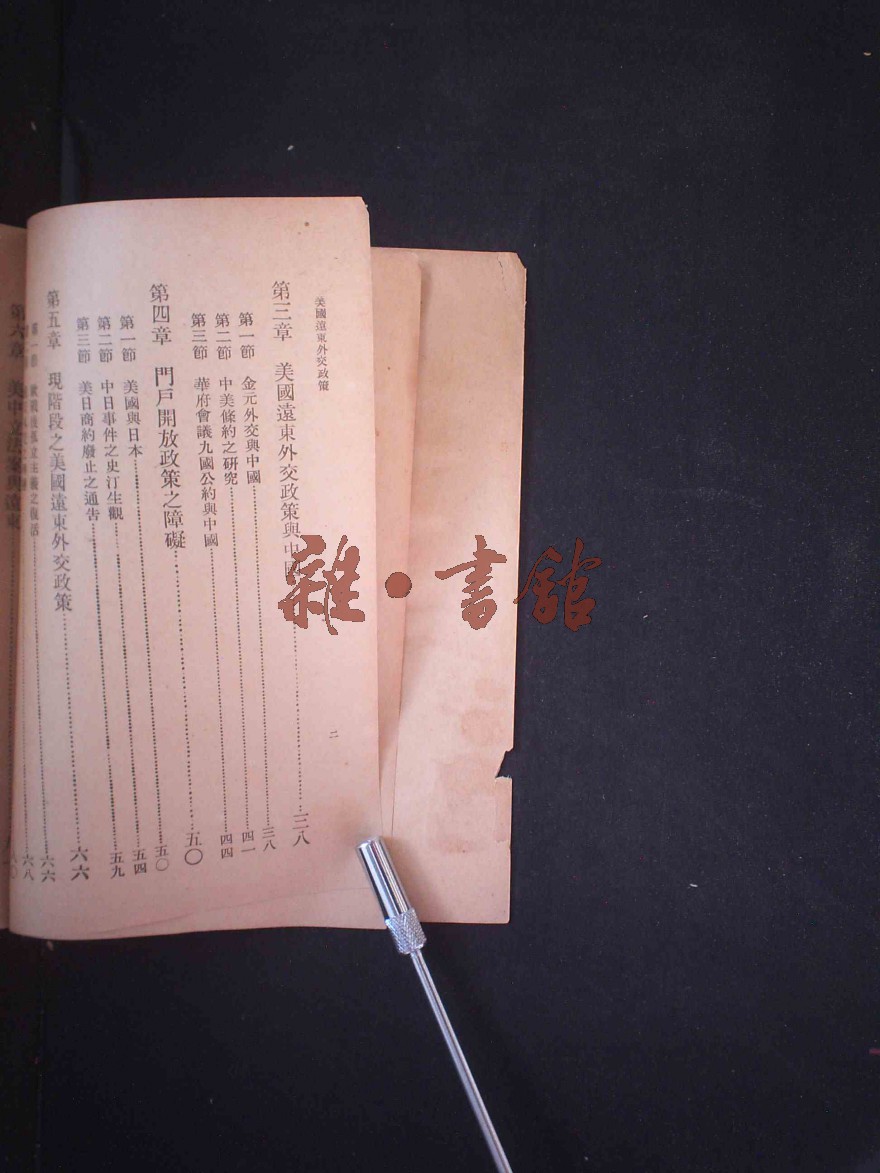 美國遠東外交政策
第三章 美國遠東外交政策與中國……三八
第一節 金元外交與中國……三八
第二節 中美條約之研究……四一
第三節 華府會議九國公約與中國……四四
第四章 門戶開放政策之障礙……五〇
第一節 美國與日本……五〇
第二節 中日事件之史汀生觀……五四
第三節 美日商約廢止之通告……五九
第五章 現階段之美國遠東外交政策……六六
第一節 歐戰後孤立主義之復活……六六
六八
第六章 美中立法案與遠東
二
雜·書館